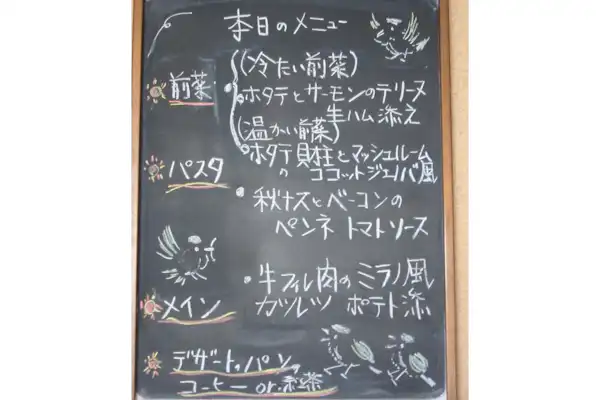 本日のメニュー
前菜
(冷たい前菜)
ホタテとサーモンのテリーヌ
生ハム添え
(温かい前菜)
ホタテ貝柱とマッシュルーム
の ココットジェノバ風
パスタ
秋ナスとベーコンの
ペンネ トマトソース
メイン
牛フィレ肉のミラノ風
カツレツ ポテト添
デザート、パン、
コーヒー or 紅茶